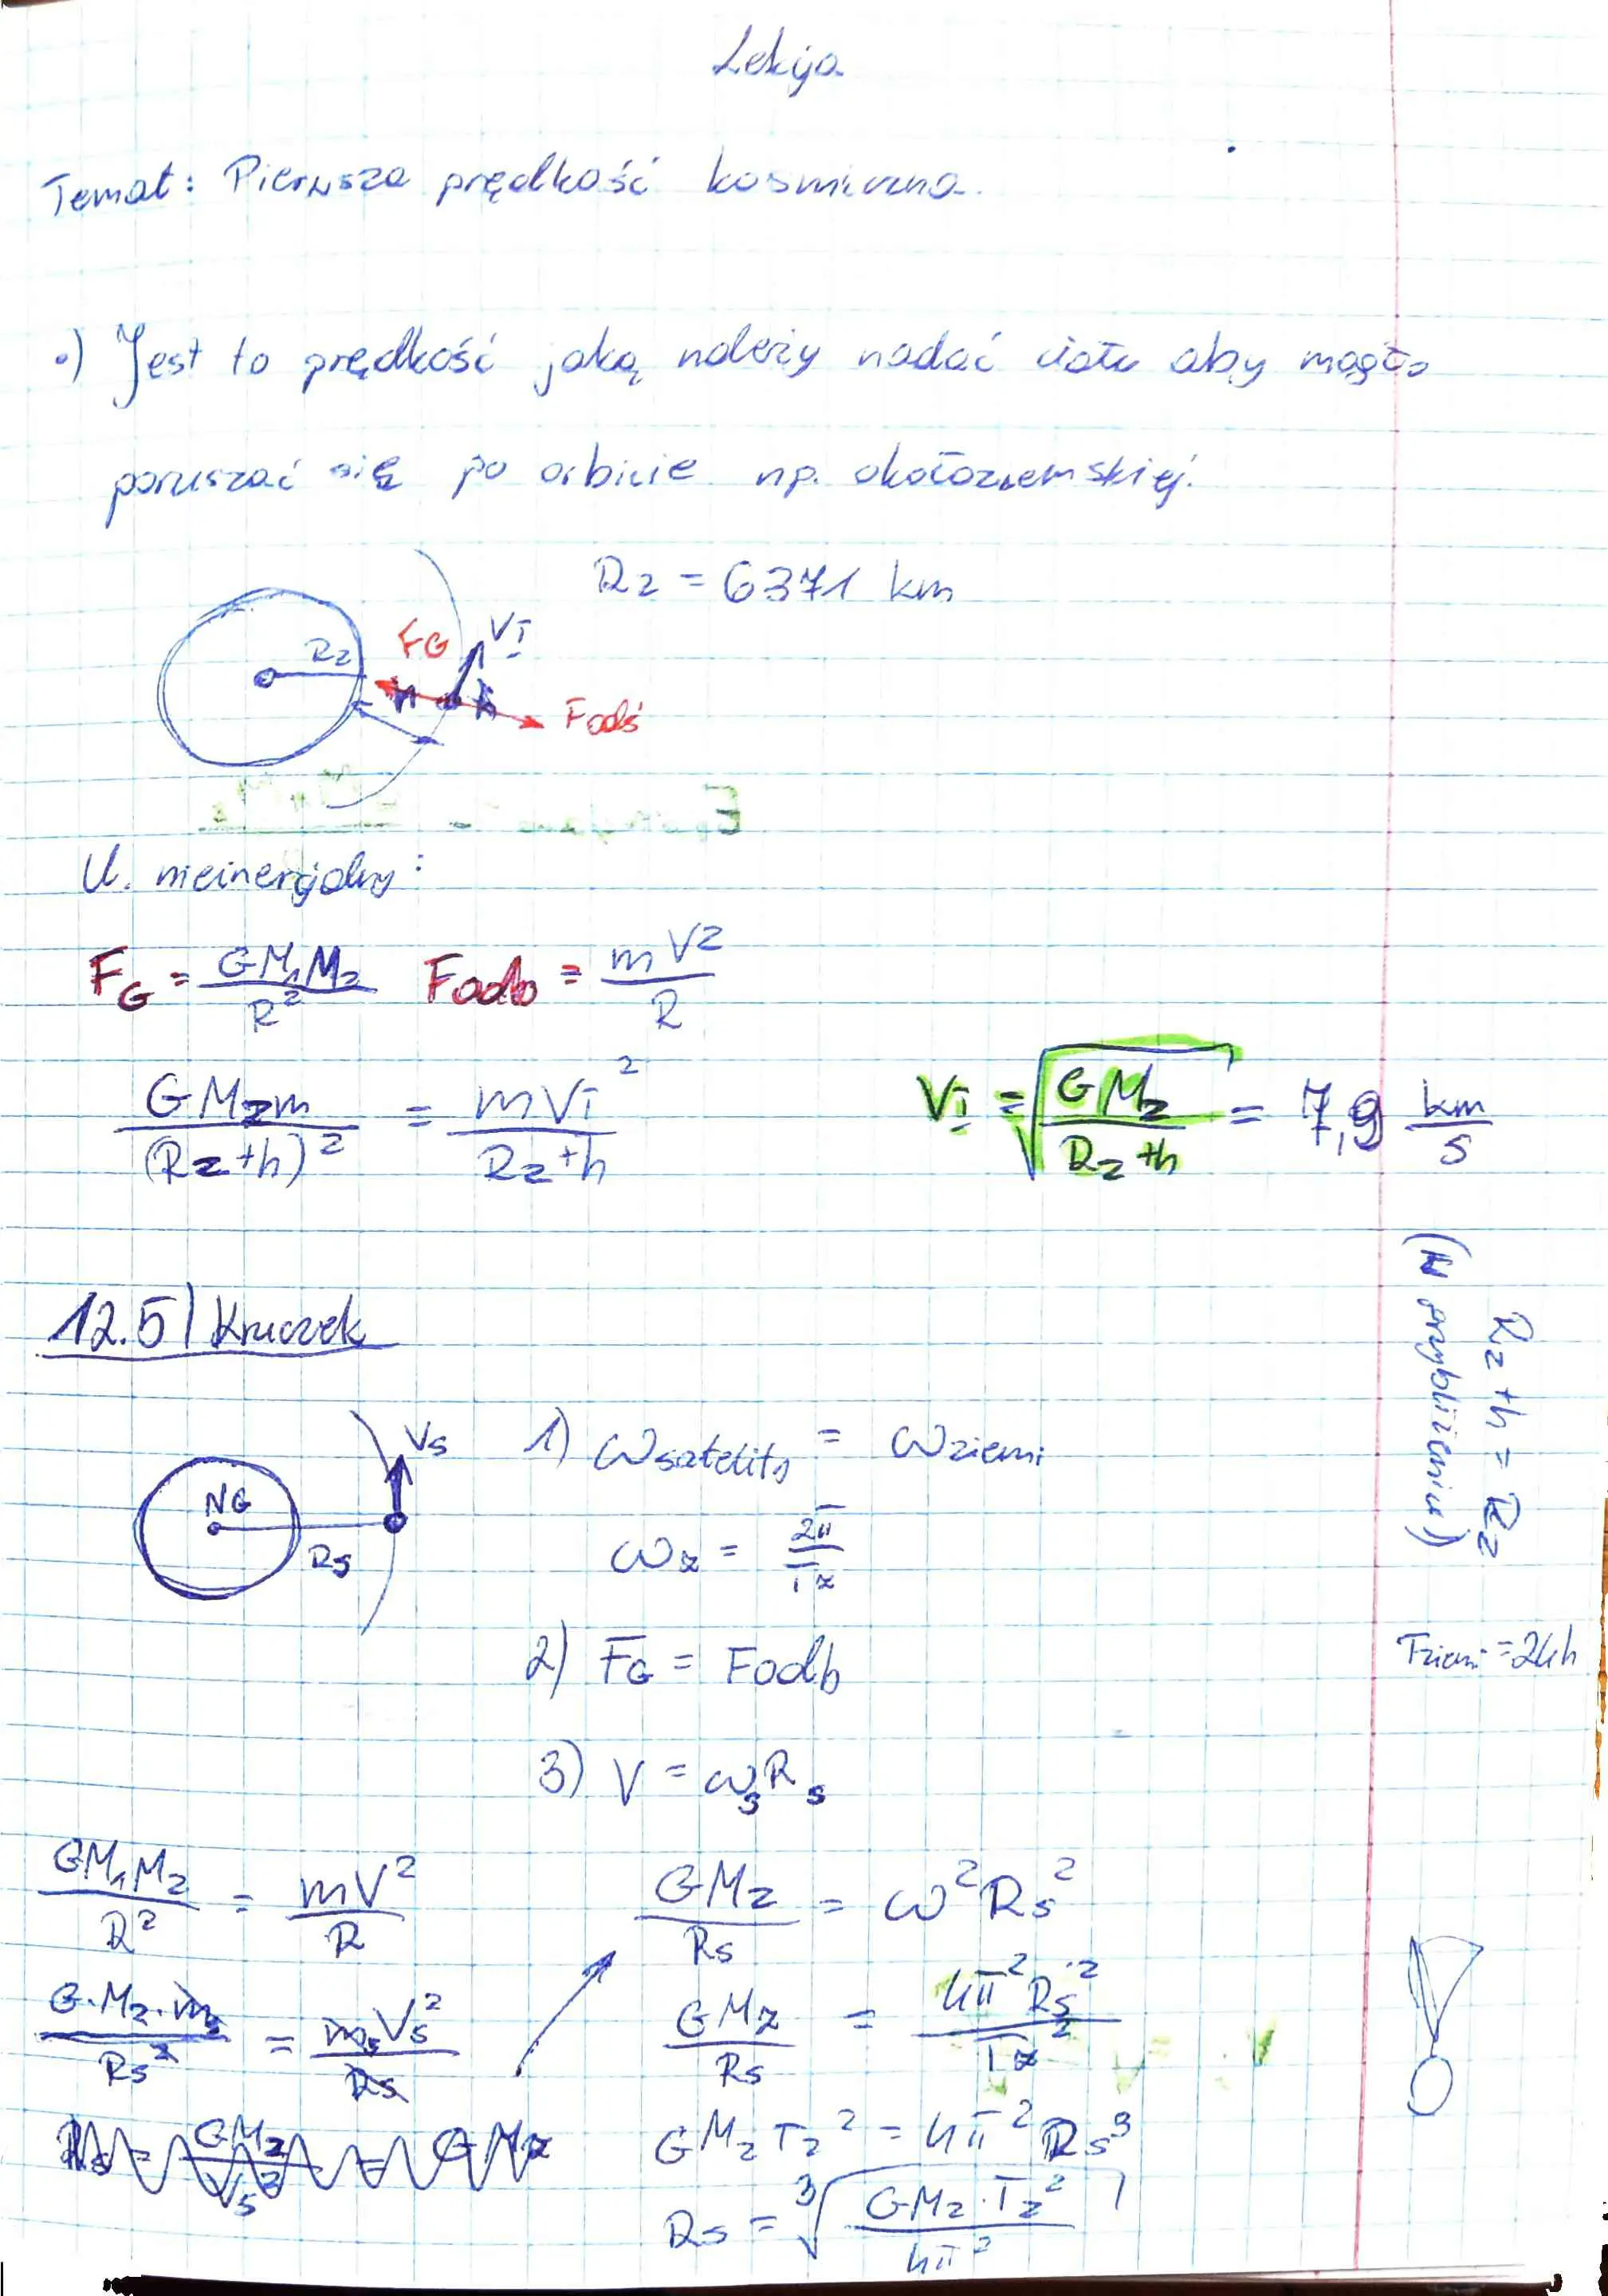 Lekcja
Temat: Pierwsza prędkość kosmiczna.
•) Jest to prędkość jaką należy nadać ciału aby mogło
poruszać się po orbicie np. okołoziemskiej.
Rz = 6371 km
Rz FG VI Fodś
h
U. nieinercjalny:
FG = GM₁M₂/R² Fodb = mV²/R
GMzm/(Rz+h)² = mVI²/(Rz+h) VI = √(GMz/(Rz+h)) = 7,9 km/s
Rz + h = Rz
(w przybliżeniu)
12.5) Kruczek
NG Rs Vs
1) ωsatelity = ωziemi
ωz = 2π/Tz
2) FG = Fodb
Tziemi = 24h
3) V = ωsRs
GM₁M₂/R² = mV²/R
G·Mz·ms/Rs² = msVs²/Rs
GMz/Rs = ω²Rs²
GMz/Rs = 4π²Rs²/Tz²
GMzTz² = 4π²Rs³
Rs = ³√(GMz·Tz²/4π²)